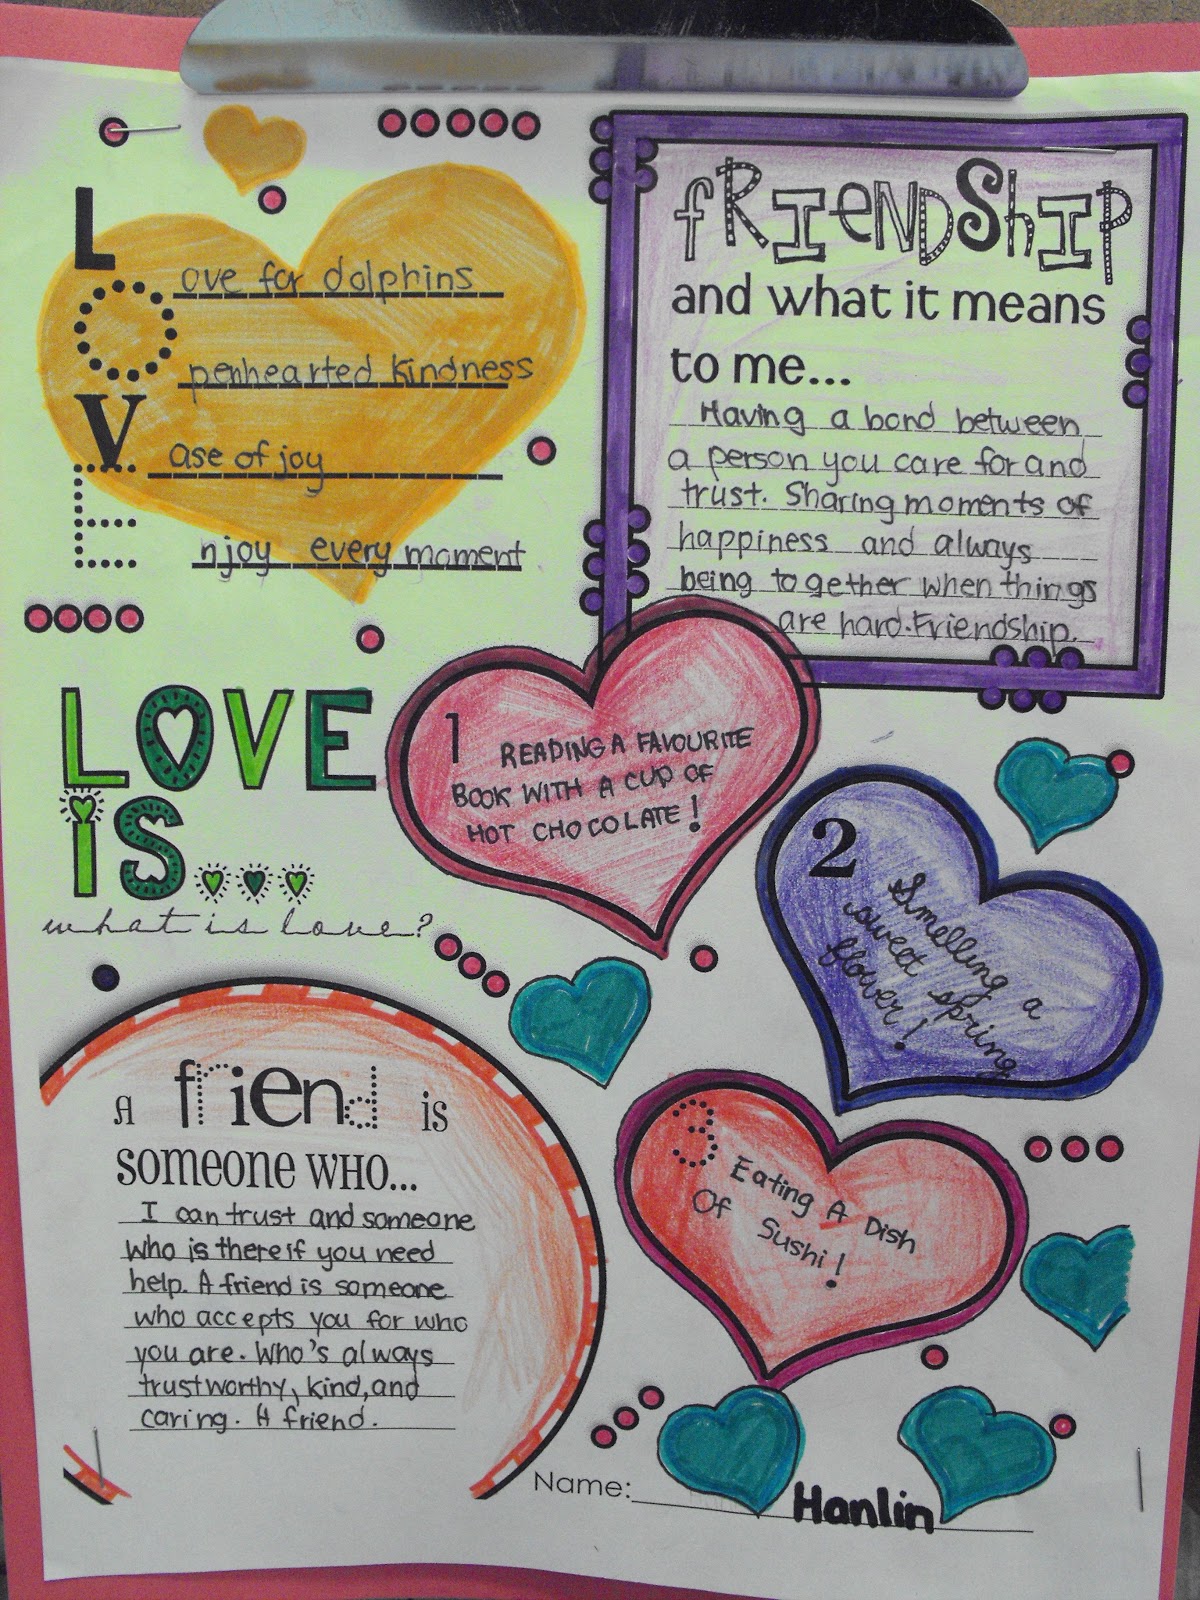 Love for dolphins
Openhearted kindness
Vase of joy
Enjoy every moment
fRIENDShIP
and what it means
to me...
Having a bond between
a person you care for and
trust. Sharing moments of
happiness and always
being together when things
are hard. Friendship.
LOVE
iS...
what is love?
1 READING A FAVOURITE
BOOK WITH A CUP OF
HOT CHOCOLATE!
2 Smelling a
sweet spring
flower!
3 Eating A Dish
Of Sushi!
A friend is
SOMEONE WHO...
I can trust and someone
who is there if you need
help. A friend is someone
who accepts you for who
you are. Who's always
trustworthy, kind, and
caring. A friend.
Name: Hanlin